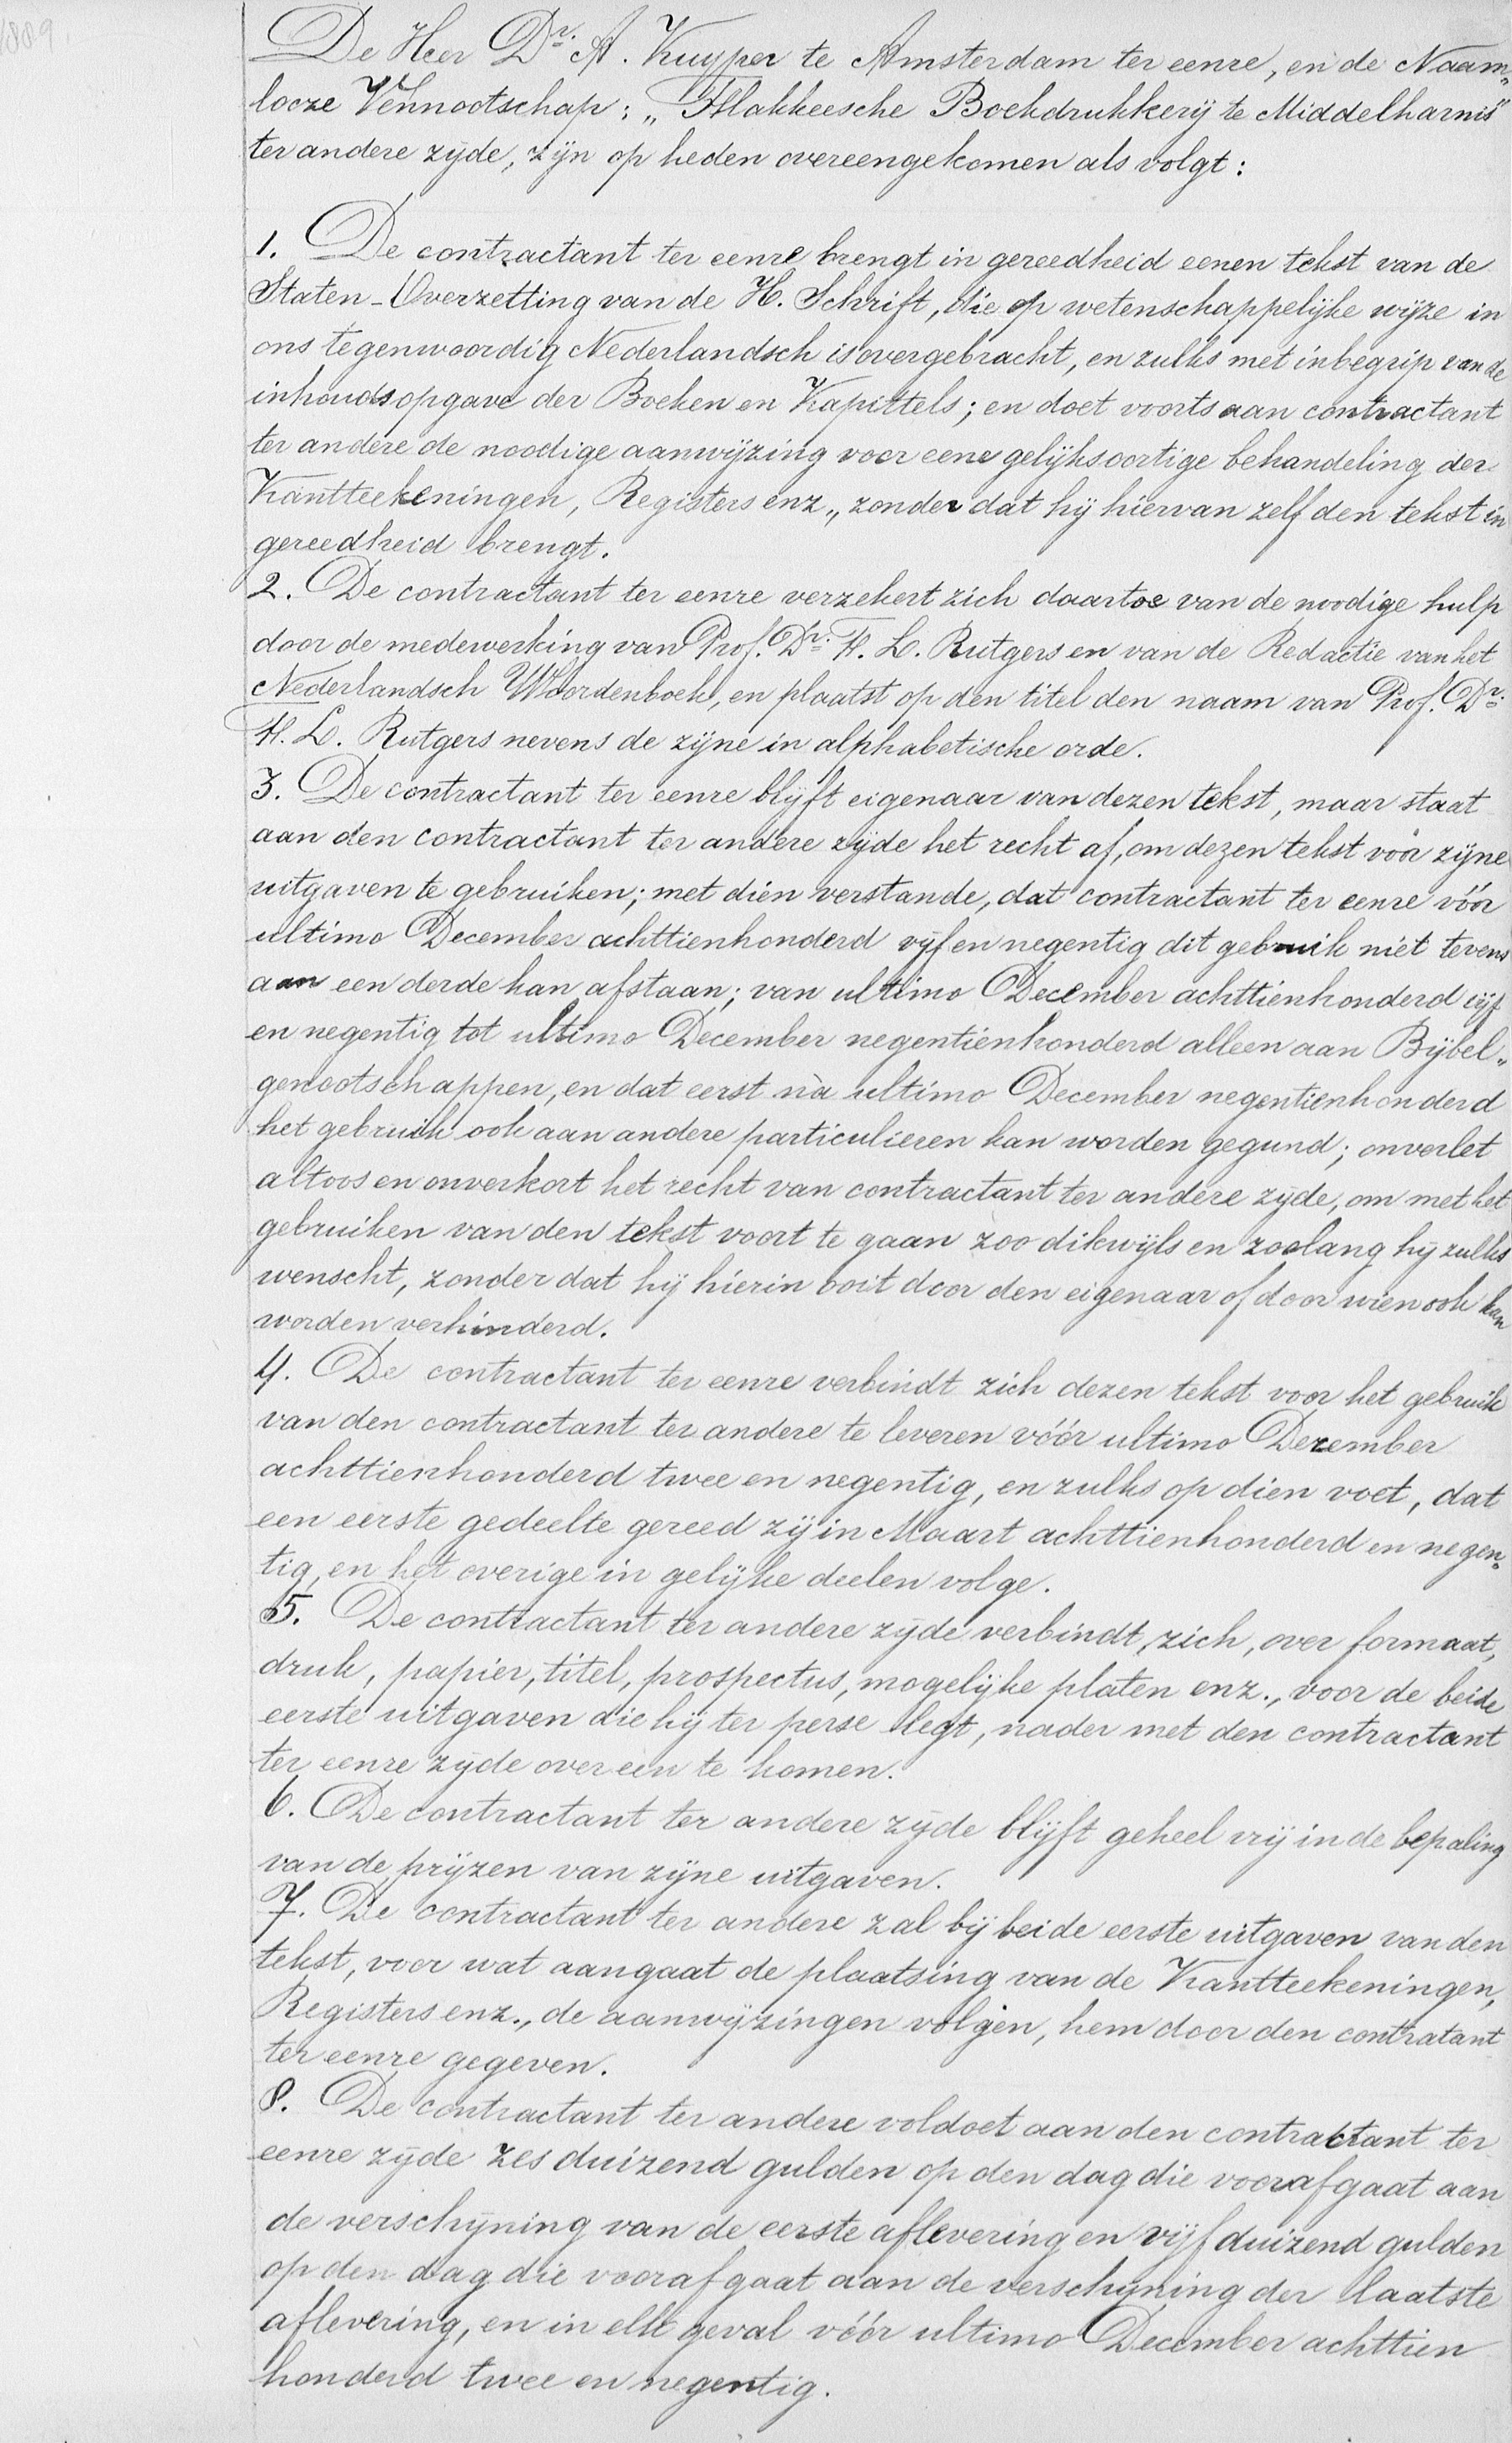 1889.
De Heer Dr. A. Kuyper te Amsterdam ter eenre, en de Naam„
looze Vennootschap: „Flakkeesche Boekdrukkerij te Middelharnis"
ter andere zijde, zijn op heden overeengekomen als volgt:
1. De contractant ter eenre brengt in gereedheid eenen tekst van de
Staten-Overzetting van de H. Schrift, die op wetenschappelijke wijze in
ons tegenwoordig Nederlandsch is overgebracht, en zulks met inbegrip van de
inhoudsopgave der Boeken en Kapittels; en doet voorts aan contractant
ter andere de noodige aanwijzing voor eene gelijksoortige behandeling der
Kantteekeningen, Registers enz., zonder dat hij hiervan zelf den tekst in
gereedheid brengt.
2. De contractant ter eenre verzekert zich daartoe van de noodige hulp
door de medewerking van Prof. Dr. F. L. Rutgers en van de Redactie van het
Nederlandsch Woordenboek, en plaatst op den titel den naam van Prof. Dr.
F. L. Rutgers nevens de zijne in alphabetische orde.
3. De contractant ter eenre blijft eigenaar van dezen tekst, maar staat
aan den contractant ter andere zijde het recht af, om dezen tekst voor zijne
uitgaven te gebruiken; met dien verstande, dat contractant ter eenre vóór
ultimo December achttienhonderd vijf en negentig dit gebruik niet tevens
aan een derde kan afstaan; van ultimo December achttienhonderd vijf
en negentig tot ultimo December negentienhonderd alleen aan Bijbel„
genootschappen, en dat eerst nà ultimo December negentienhonderd
het gebruik ook aan andere particulieren kan worden gegund; onverlet
altoos en onverkort het recht van contractant ter andere zijde, om met het
gebruiken van den tekst voort te gaan zoo dikwijls en zoolang hij zulks
wenscht, zonder dat hij hierin ooit door den eigenaar of door wien ook kan
worden verhinderd.
4. De contractant ter eenre verbindt zich dezen tekst voor het gebruik
van den contractant ter andere te leveren vóór ultimo December
achttienhonderd twee en negentig, en zulks op dien voet, dat
een eerste gedeelte gereed zij in Maart achttienhonderd en negen„
tig, en het overige in gelijke deelen volge.
5. De contractant ter andere zijde verbindt zich, over formaat,
druk, papier, titel, prospectus, mogelijke platen enz., voor de beide
eerste uitgaven die hij ter perse legt, nader met den contractant
ter eenre zijde overeen te komen.
6. De contractant ter andere zijde blijft geheel vrij in de bepaling
van de prijzen van zijne uitgaven.
7. De contractant ter andere zal bij beide eerste uitgaven van den
tekst, voor wat aangaat de plaatsing van de Kantteekeningen,
Registers enz., de aanwijzingen volgen, hem door den contratant
ter eenre gegeven.
8. De contractant ter andere voldoet aan den contractant ter
eenre zijde zes duizend gulden op den dag die voorafgaat aan
de verschijning van de eerste aflevering en vijf duizend gulden
op den dag die voorafgaat aan de verschijning der laatste
aflevering, en in elk geval vóór ultimo December achttien
honderd twee en negentig.